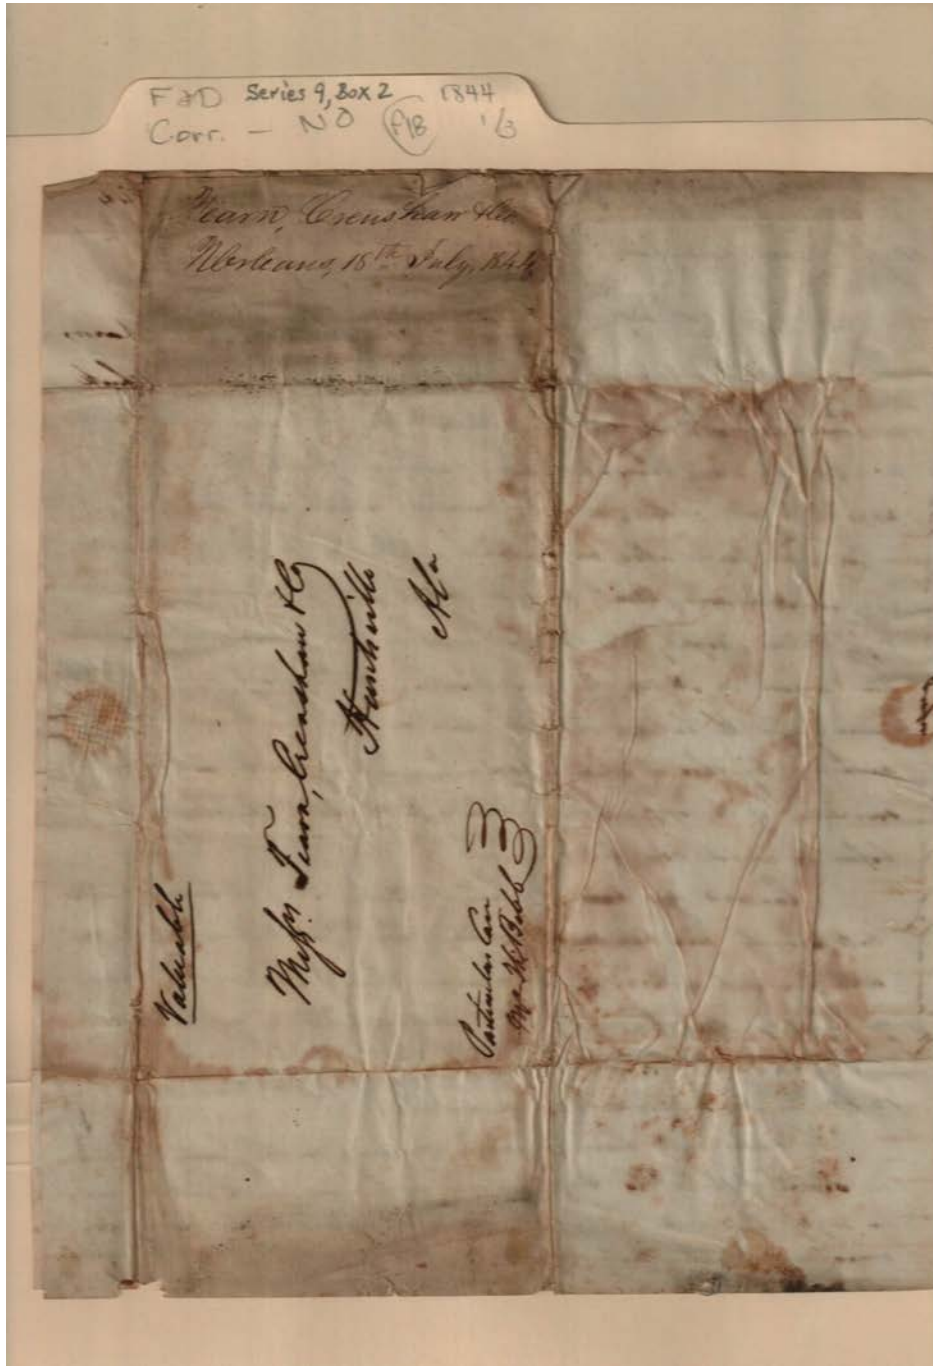 F&D Series 9, Box 2 1844
Corr. - NO F18 1/3
Fearn, Crenshaw & Co
NOrleans, 15th July, 1844
Valuable
Messrs. Fearn, Crenshaw & Co
Huntsville
Ala
Particular Care
Bibb